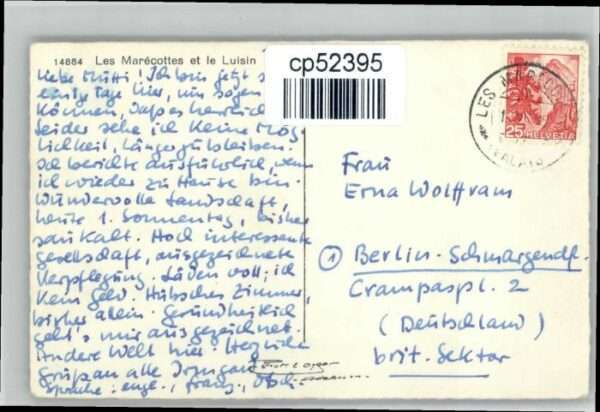 14884 Les Marécottes et le Luisin
cp52395
Liebe Mutti! Ich bin jetzt
einige Tage hier, um sagen
können, daß es herrlich
Leider sehe ich keine Mög-
lichkeit, länger zu bleiben.
Ich berichte ausführlich, wenn
ich wieder zu Hause bin.
Wundervolle Landschaft,
heute 1. Sonnentag, bisher
saukalt. Hoch interessante
Gesellschaft, ausgezeichnete
Verpflegung. Läden voll; ich
kein Geld. Hübsches Zimmer,
bisher allein. Gesundheitlich
geht's mir ausgezeichnet.
Andere Welt hier. Herzliche
Grüße an alle
Sprache: engl., franz.,
25 HELVETIA
LES MARÉCOTTES
(VALAIS)
Frau
Erna Wolffram
① Berlin-Schmargendf.
Crampaspl. 2
(Deutschland)
brit. Sektor